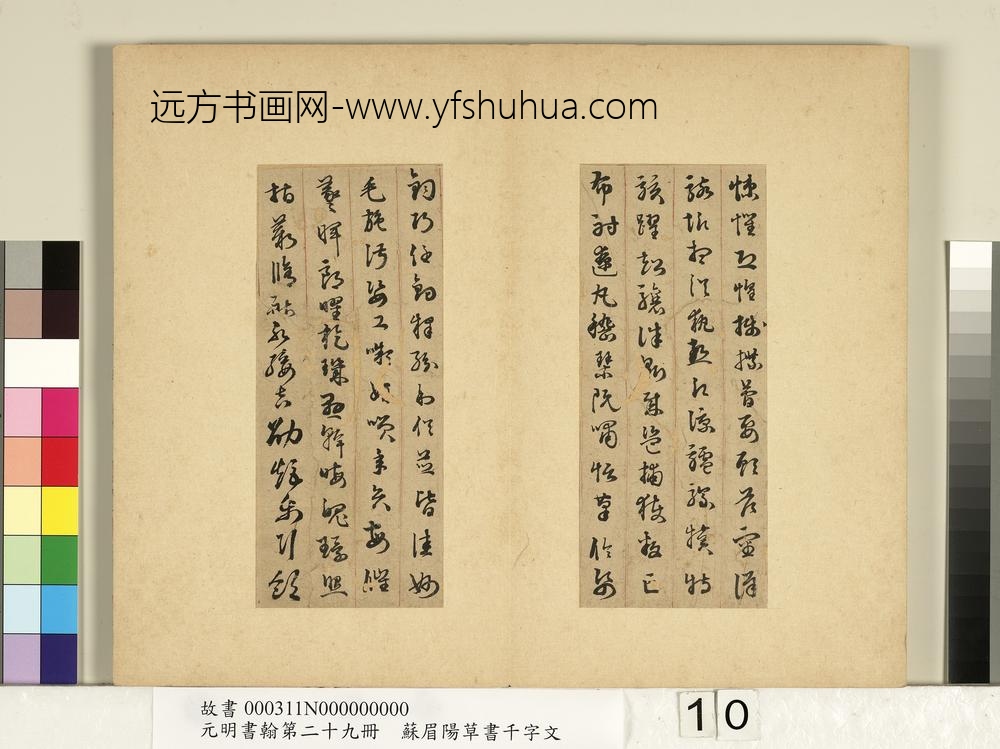 远方书画网-www.yfshuhua.com
悚懼恐惶牋牒簡要顧答審詳
骸垢想浴執熱願涼驢騾犢特
駭躍超驤誅斬賊盜捕獲叛亡
布射遼丸嵇琴阮嘯恬筆倫紙
鈞巧任釣釋紛利俗並皆佳妙
毛施淑姿工嚬妍笑年矢每催
羲暉朗曜璇璣懸斡晦魄環照
指薪脩祜永綏吉劭矩步引領
故書 000311N000000000
元明書翰第二十九冊 蘇眉陽草書千字文
10